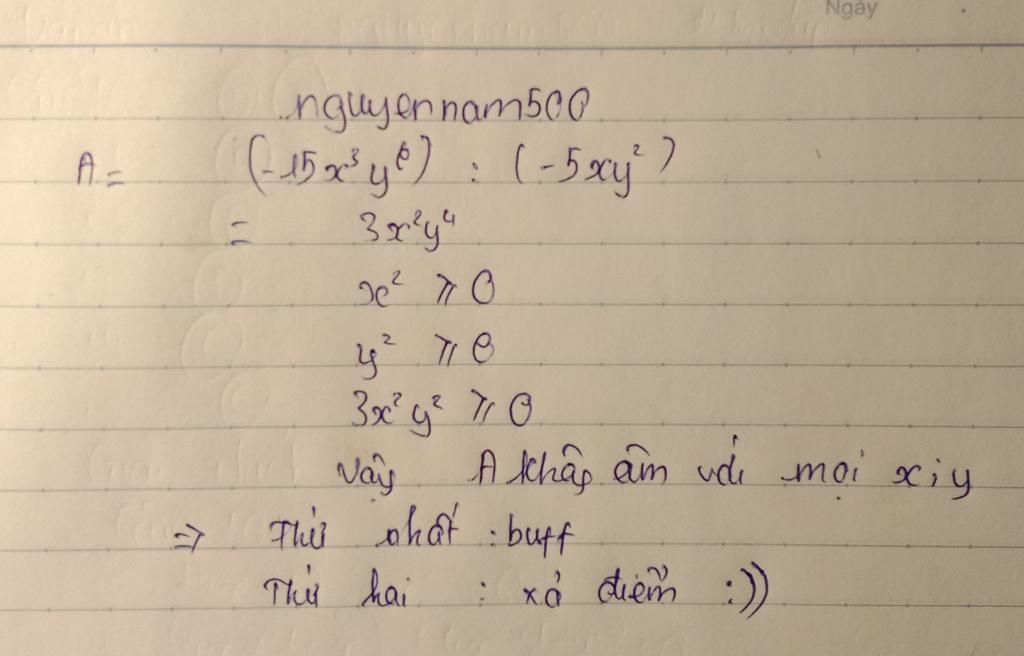 Ngày
nguyennam500
A = (-15x³y⁶) : (-5xy²)
= 3x²y⁴
x² ⩾ 0
y² ⩾ 0
3x²y² ⩾ 0
Vậy A khập âm với mọi x; y
=> Thứ nhất : buff
Thứ hai : xả điểm :))